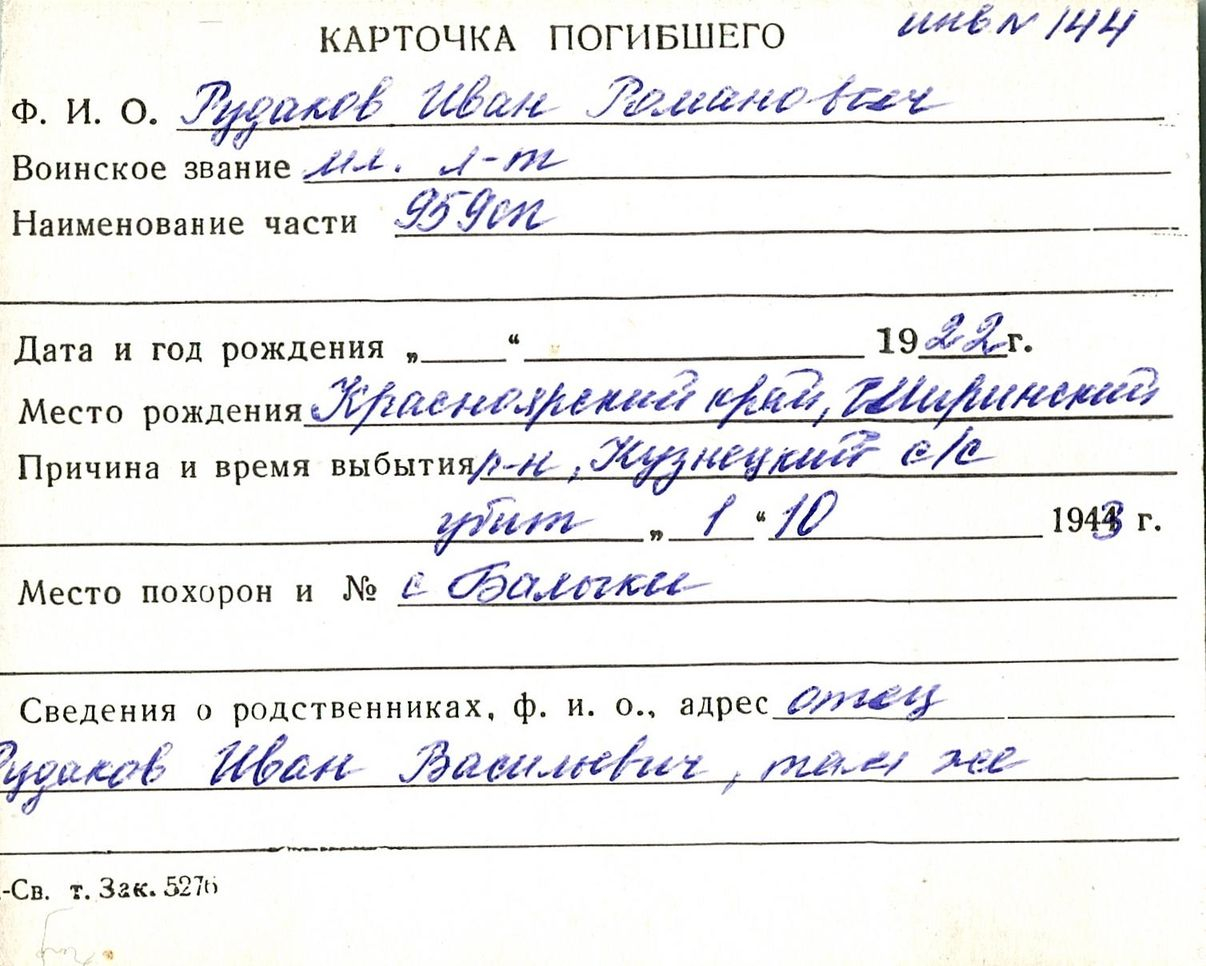 инв N 144
КАРТОЧКА ПОГИБШЕГО
Ф. И. О. Рудаков Иван Романович
Воинское звание мл. л-т
Наименование части 959сп
Дата и год рождения „ “ 1922г.
Место рождения Красноярский край, Ширинский
Причина и время выбытия р-н, Кузнецкий с/с
убит „ 1 “ 10 1943 г.
Место похорон и № с Балыки
Сведения о родственниках, ф. и. о., адрес отец
Рудаков Иван Васильевич, там же
-Св. т. Зак. 5276